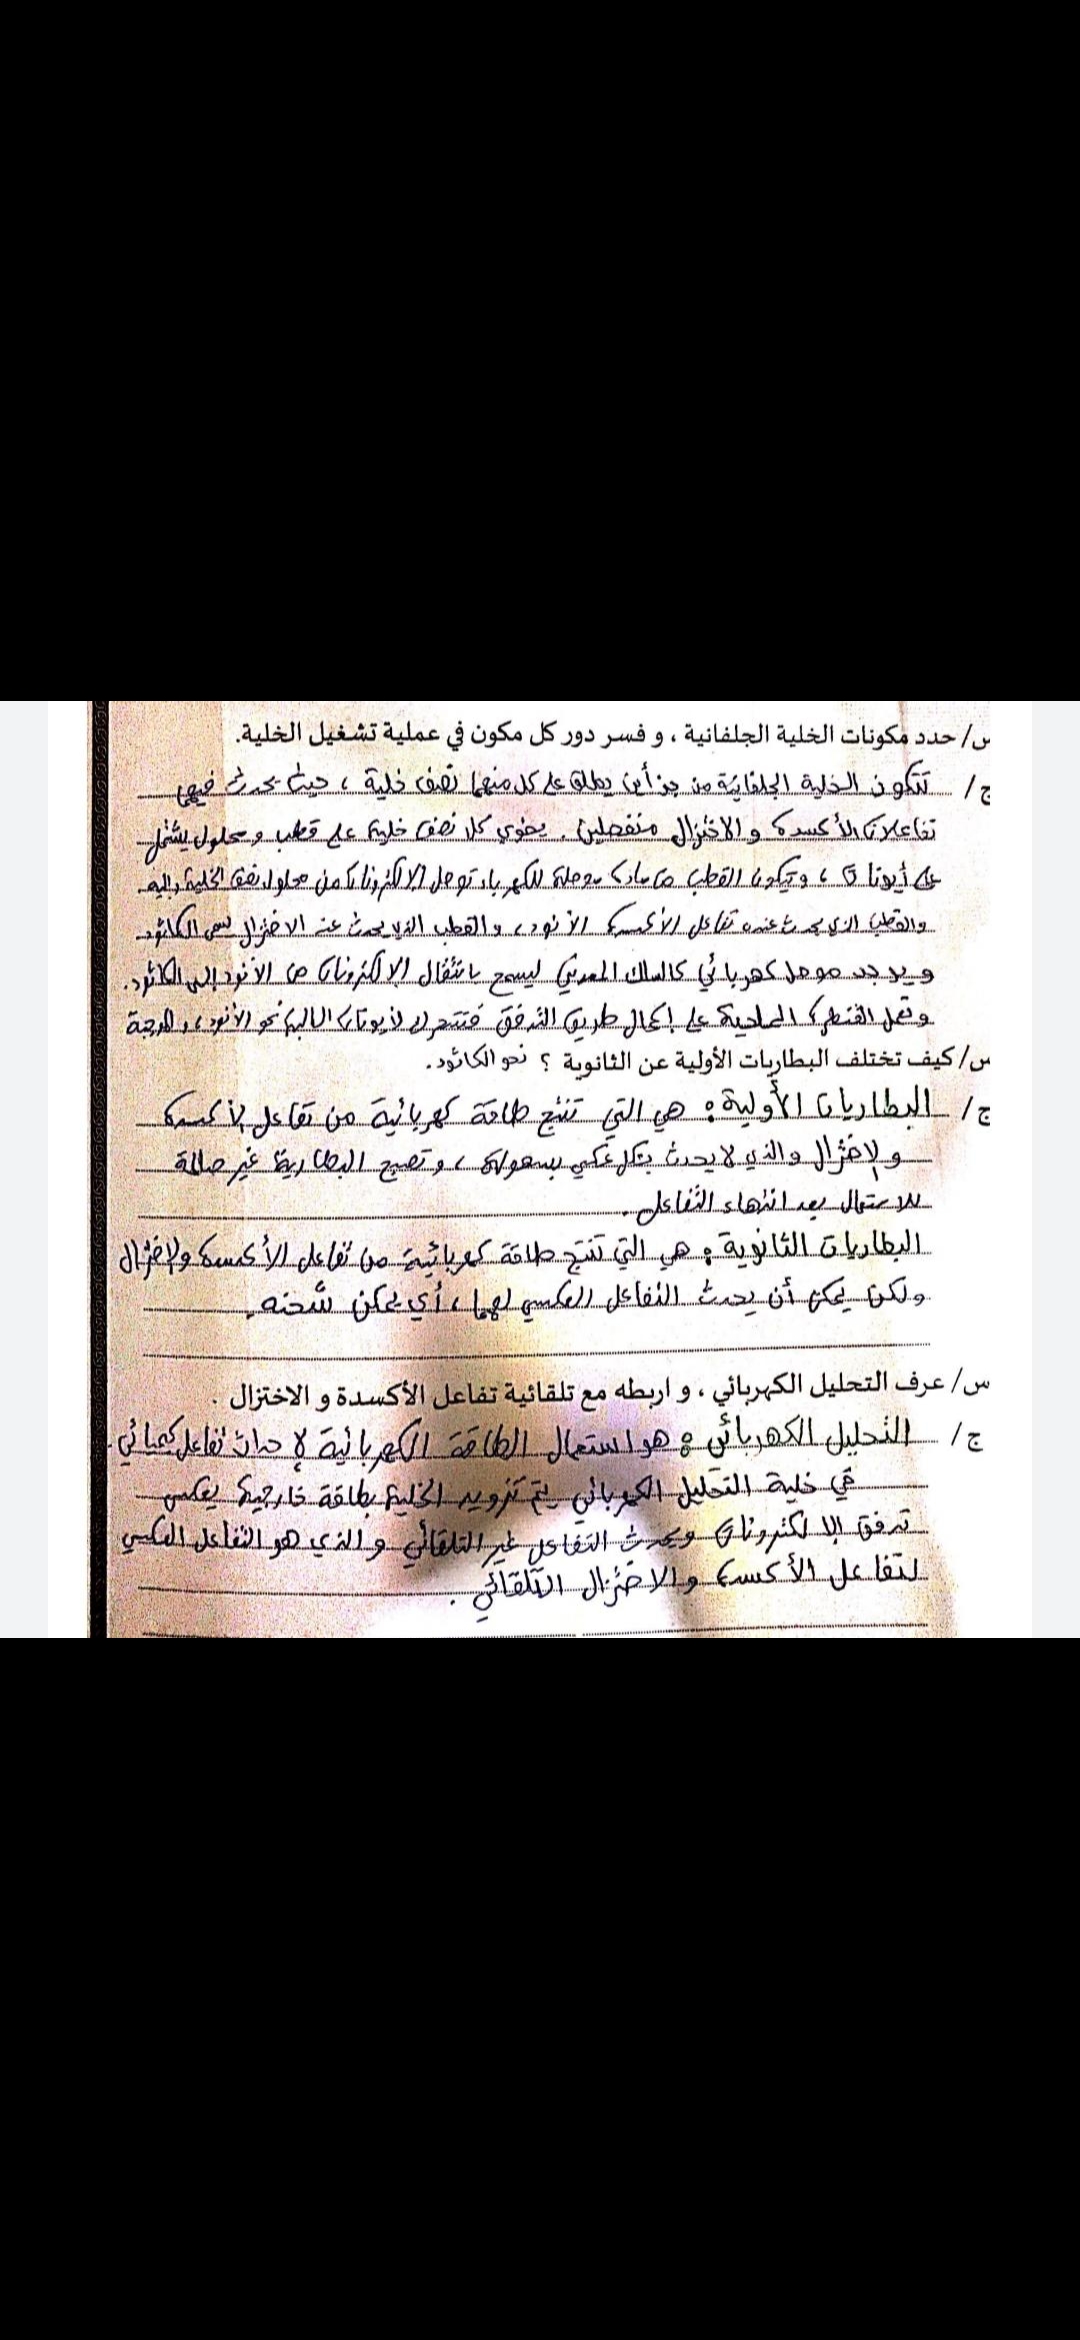 س/ حدد مكونات الخلية الجلفانية ، و فسر دور كل مكون في عملية تشغيل الخلية.
ج/ تتكون الخلية الجلفانية من جزأين يطلق على كل منهما نصف خلية ، حيث يحدث فيهما
تفاعلات الأكسدة و الاختزال منفصلين . يحتوي كل نصف خلية على قطب و محلول يشتمل
على أيونات ، ويتكون القطب من مادة موصلة للكهرباء توصل الالكترونات من محلول نصف الخلية وإليه.
والقطب الذي يحدث عنده تفاعل الأكسدة الأنود ، والقطب الذي يحدث عند الاختزال يسمى الكاثود.
ويوجد موصل كهربائي كالسلك المعدني ليسمح بانتقال الإلكترونات من الأنود إلى الكاثود.
وتعمل القنطرة الملحية على إكمال طريق التدفق فتتحرك الأيونات السالبة نحو الأنود ، والموجبة
نحو الكاثود.
س/ كيف تختلف البطاريات الأولية عن الثانوية ؟
ج/ البطاريات الأولية : هي التي تنتج طاقة كهربائية من تفاعل الأكسدة
والاختزال والذي لا يحدث بشكل عكسي بسهولة ، وتصبح البطارية غير صالحة
للاستعمال بعد انتهاء التفاعل .
البطاريات الثانوية : هي التي تنتج طاقة كهربائية من تفاعل الأكسدة والاختزال
ولكن يمكن أن يحدث التفاعل العكسي لهما ، أي يمكن شحنه .
س/ عرف التحليل الكهربائي ، و اربطه مع تلقائية تفاعل الأكسدة و الاختزال .
ج/ التحليل الكهربائي : هو استعمال الطاقة الكهربائية لإحداث تفاعل كيميائي .
في خلية التحليل الكهربائي يتم تزويد الخلية بطاقة خارجية يعكس
تدفق الإلكترونات ويحدث التفاعل غير التلقائي والذي هو التفاعل العكسي
لتفاعل الأكسدة والاختزال التلقائي .